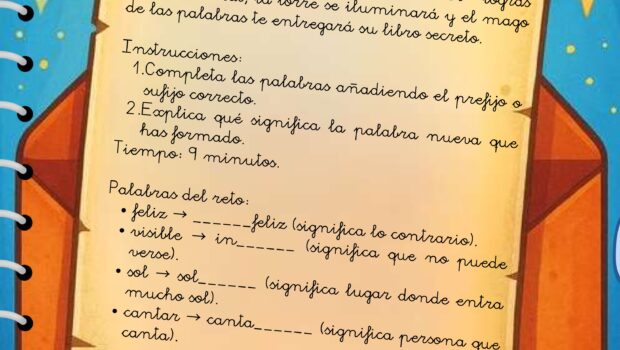 la torre se iluminará y el mago
de las palabras te entregará su libro secreto.
Instrucciones:
1.Completa las palabras añadiendo el prefijo o
sufijo correcto.
2.Explica qué significa la palabra nueva que
has formado.
Tiempo: 9 minutos.
Palabras del reto:
• feliz → ______feliz (significa lo contrario).
• visible → in______ (significa que no puede
verse).
• sol → sol______ (significa lugar donde entra
mucho sol).
• cantar → canta______ (significa persona que
canta).